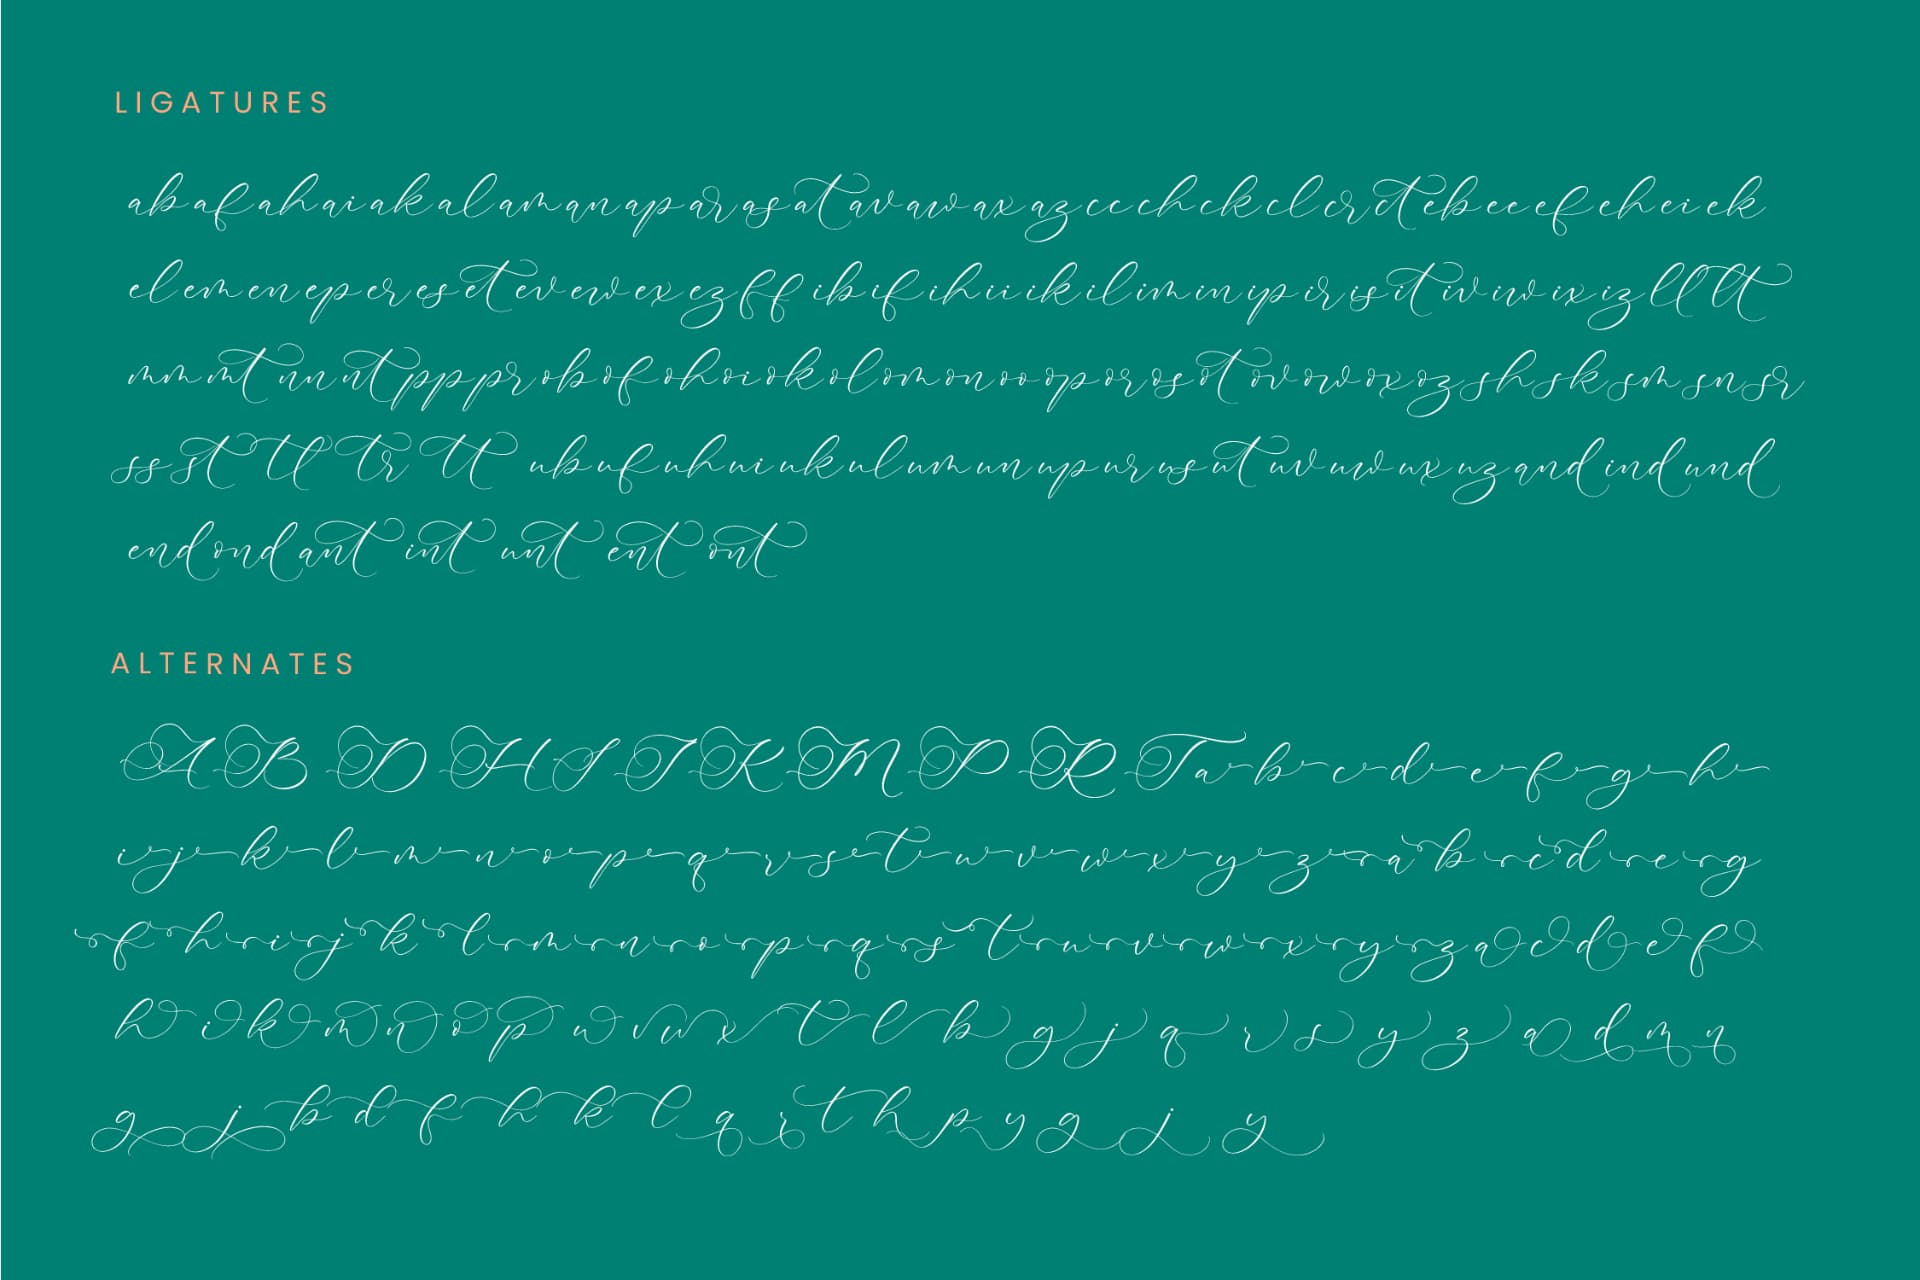 LIGATURES
ab af ah ai ak al am an ap ar as at av aw ax az cc ch ck cl cr ct eb ee ef eh ei ek
el em en ep er es et ev ew ex ez ff ib if ih ii ik il im in ip ir is it iv iw ix iz ll lt
mm mt nn nt pp pr ob of oh oi ok ol om on oo op or os ot ov ow ox oz sh sk sm sn sr
ss st tl tr tt ub uf uh ui uk ul um un up ur us ut uv uw ux uz and ind und
end ond ant int unt ent ont
ALTERNATES
A B D H S I K M P R T a b c d e f g h
i j k l m n o p q r s t u v w x y z a b c d e g
f h i j k l m n o p q s t u v w x y z a c d e f
h i k m n o p u v w x t l b g j q r s y z a d m n
g j b d f h k l q r t h p y g j y